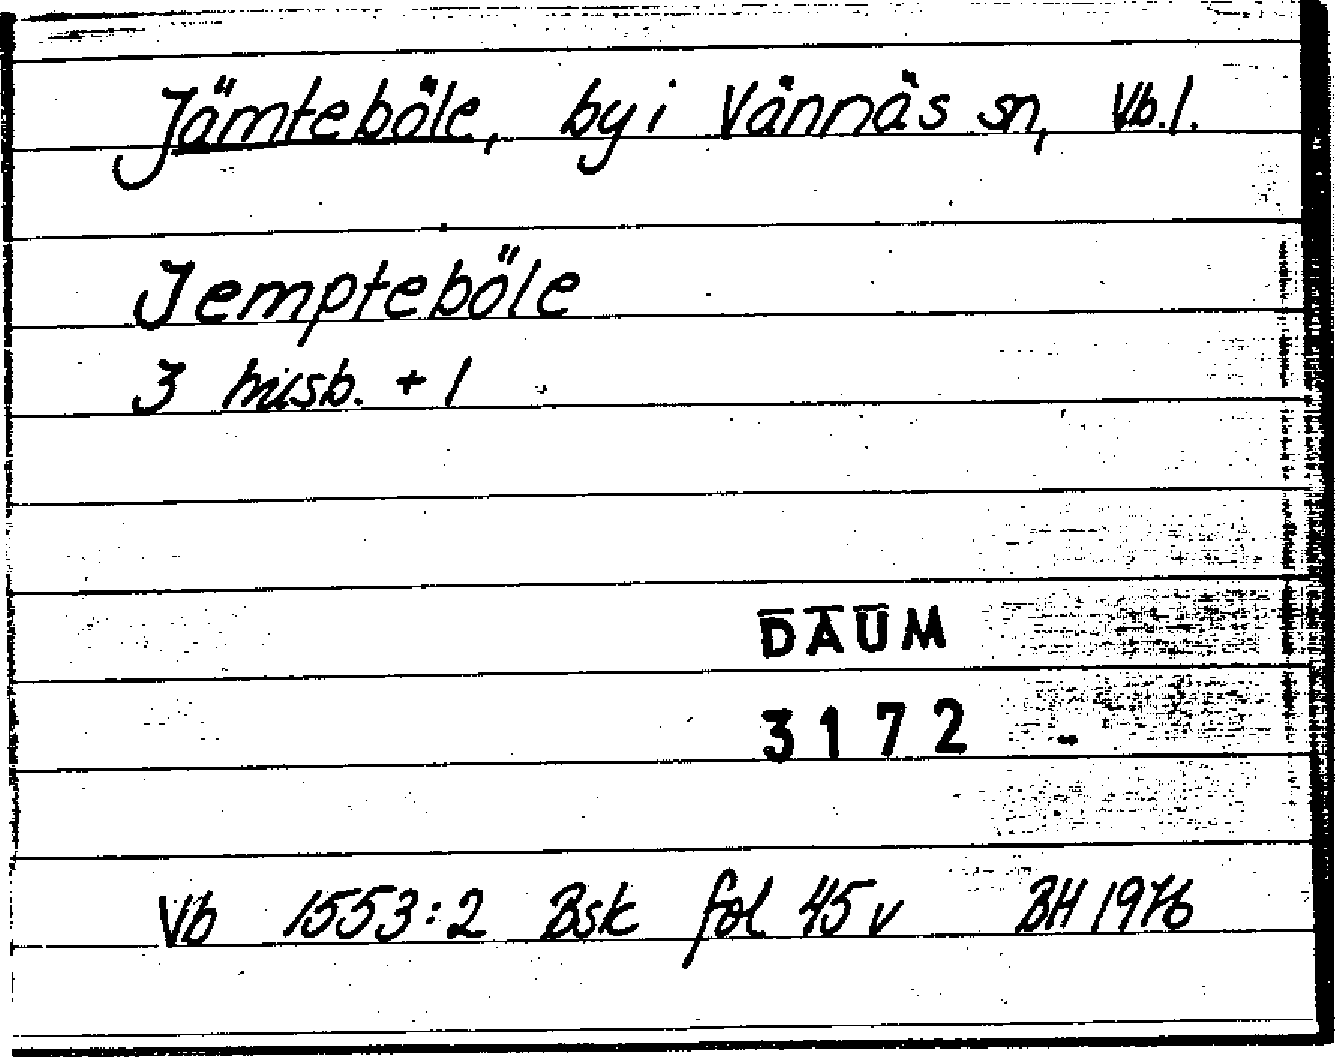 Jämteböle, by i Vännäs sn, Vb.l.
Jempteböle
3 husb. + 1
DAUM
3172
Vb 1553:2 Bsk fol 45 v BH 1976